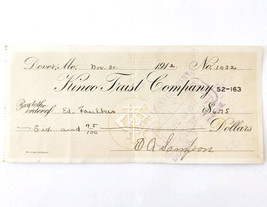 Dover, Me. Nov. 30 1912 No. 1032
Kineo Trust Company 52-163
Pay to the order of Ed. Faulkner $6.75
Six and 75/100 Dollars
O A Sampson